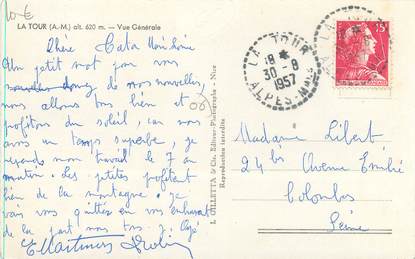 10€
LA TOUR (A.-M.) alt. 620 m. — Vue Générale
Chère Tata
Un petit mot pour vous
donner de nos nouvelles,
nous allons tous bien et
profitons du soleil, car nous
avons un temps superbe, je
reprends mon travail le 7 au
matin. Les petits profitent
bien de la montagne. Je
vais vous quitter en vous embrassant
de la part de nous tous.
E Martinez
06
L. GILLETTA & Cie, Editeur-Photographe - Nice
Reproduction interdite
LA TOUR
18 *
30-8
1957
ALPES-MMES
15F
Madame Libert
24 bis Avenue
Colombes
Seine